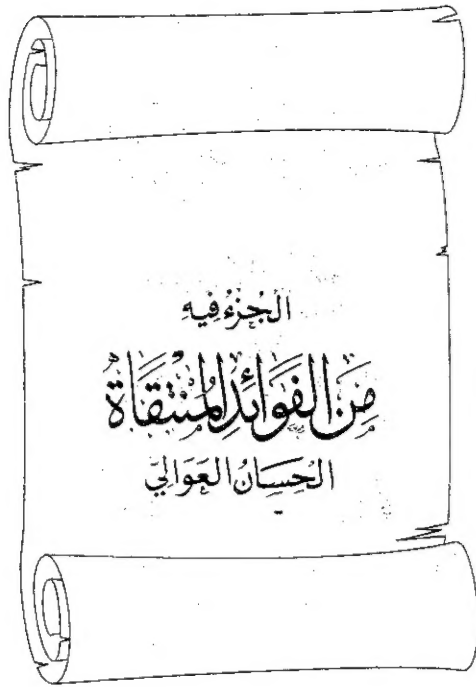 الجُزْءُ فِيهِ
مِنَ الفَوَائِدِ المُنْتَقَاةِ
الحِسَانُ العَوَالِيّ